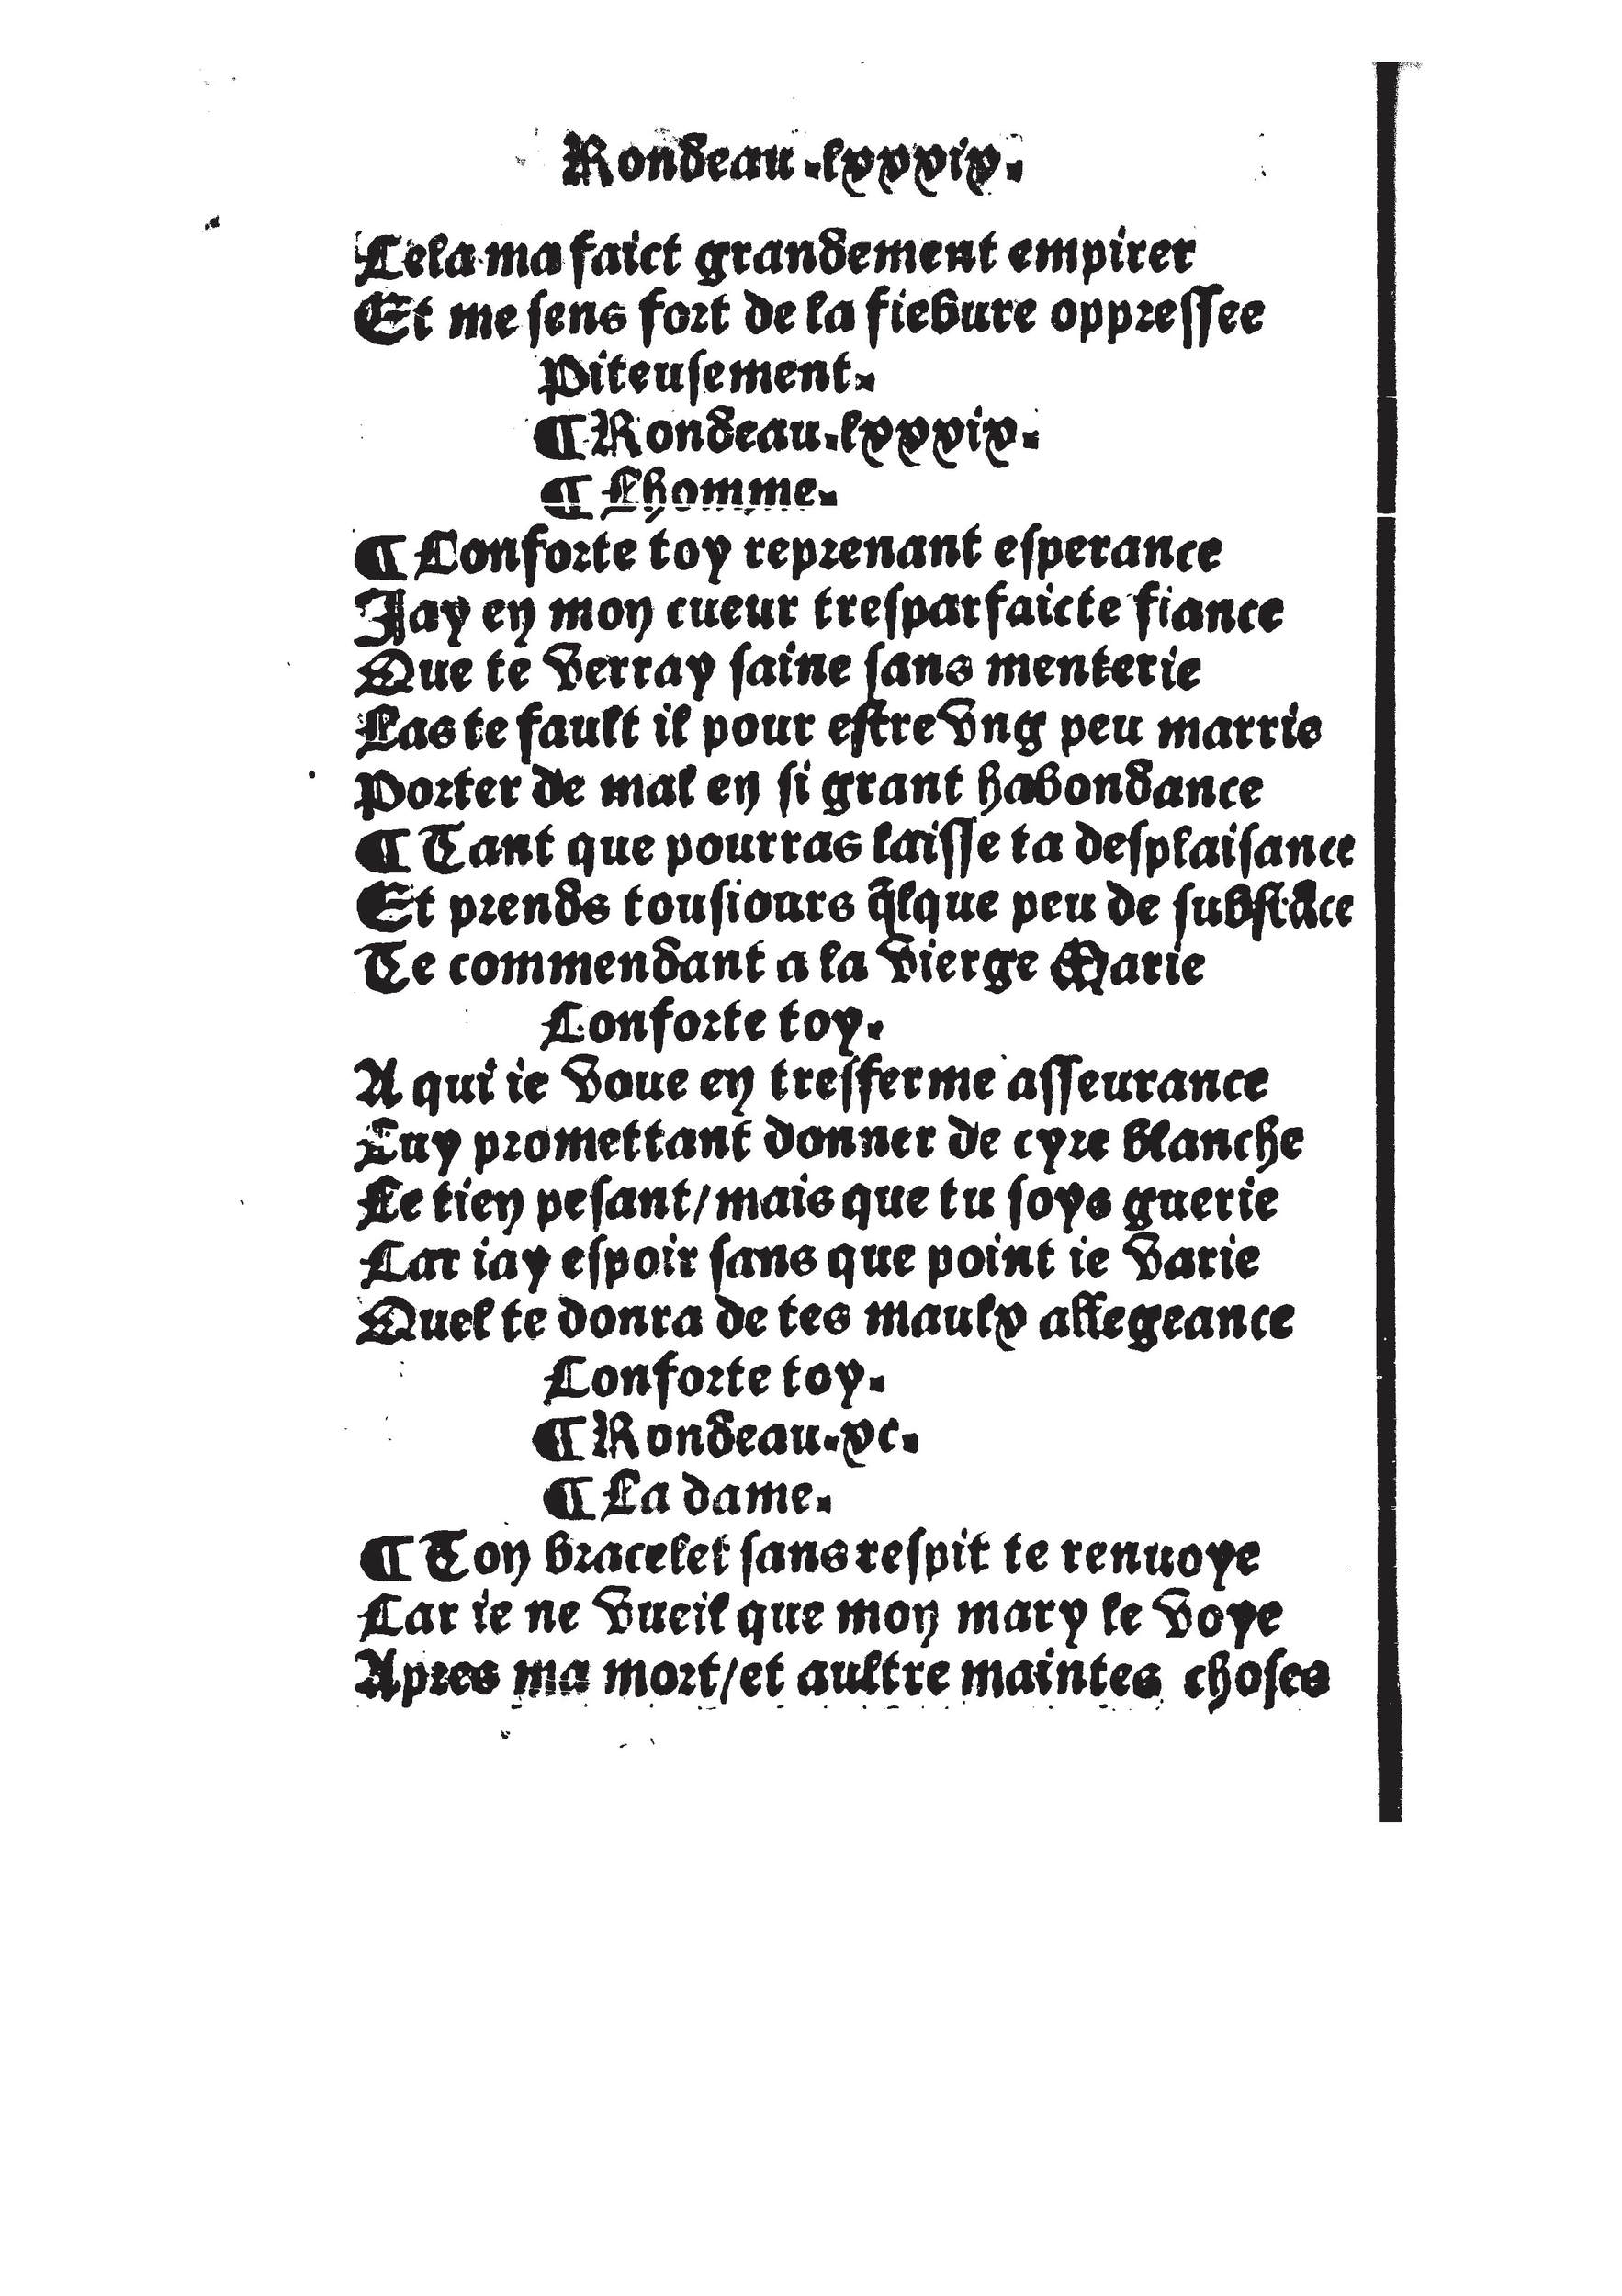 Rondeau .lxxxix.
Cela ma faict grandement empirer
Et me ſens fort de la fiebure oppreſſee
Piteuſement.
¶ Rondeau .lxxxix.
¶ Lhomme.
¶ Conforte toy reprenant eſperance
Jay en mon cueur treſparfaicte fiance
Que te verray ſaine ſans menterie
Las te fault il pour eſtre vng peu marrie
Porter de mal en ſi grant habondance
¶ Tant que pourras laiſſe ta deſplaiſance
Et prends touſiours q̄lque peu de ſubſtāce
Te commendant a la vierge Marie
Conforte toy.
A qui ie voue en treſferme aſſeurance
Luy promettant donner de cyre blanche
Le tien peſant/mais que tu ſoys guerie
Car iay eſpoir ſans que point ie varie
Quel te donra de tes maulx allegeance
Conforte toy.
¶ Rondeau .xc.
¶ La dame.
¶ Ton bracelet ſans reſpit te renuoye
Car ie ne vueil que mon mary le voye
Apres ma mort/et aultre maintes choſes